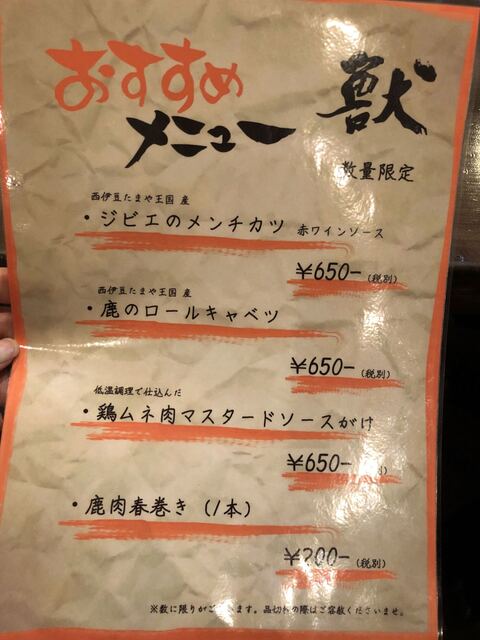 おすすめ
メニュー
獣
数量限定
西伊豆たまや王国 産
・ジビエのメンチカツ 赤ワインソース
¥650-(税別)
西伊豆たまや王国 産
・鹿のロールキャベツ
¥650-(税別)
低温調理で仕込んだ
・鶏ムネ肉マスタードソースがけ
¥650-
・鹿肉春巻き (1本)
¥200-(税別)
※数に限りがございます。品切れの際はご容赦くださいませ。